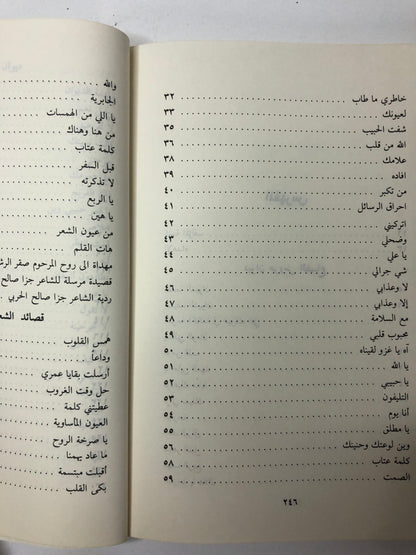 خاطري ما طاب ٣٢
لعيونك ٣٣
شفت الحبيب ٣٥
الله من قلب ٣٦
علامك ٣٨
افاده ٣٩
من تكبر ٤٠
احراق الرسائل ٤١
اتركيني ٤٢
وضحلي ٤٣
يا علي ٤٤
شي جرالي ٤٥
لا وعذابي ٤٦
إلا وعذابي ٤٧
مع السلامة ٤٨
محبوب قلبي ٤٩
آه يا غزو لقيناه ٥٠
يا الله ٥١
يا حبيبي ٥٢
التليفون ٥٣
أنا يوم ٥٤
يا مطلق ٥٥
وين لوعتك وحنينك ٥٦
كلمة عتاب ٥٨
الصمت ٥٩
٢٤٦
والله
الجابرية
يا اللي من الهمسات
من هنا وهناك
كلمة عتاب
قبل السفر
لا تذكرته
يا الربع
يا هين
من عيون الشعر
هات القلم
مهداة الى روح المرحوم صقر
قصيدة مرسلة للشاعر جزا صالح
ردية الشاعر جزا صالح الحربي
قصائد
همس القلوب
وداعاً
أرسلت بقايا عمري
حل وقت الغروب
عطيتني كلمة
العيون المأساوية
يا صرخة الروح
ما عاد يهمنا
أقبلت مبتسمة
بكى القلب